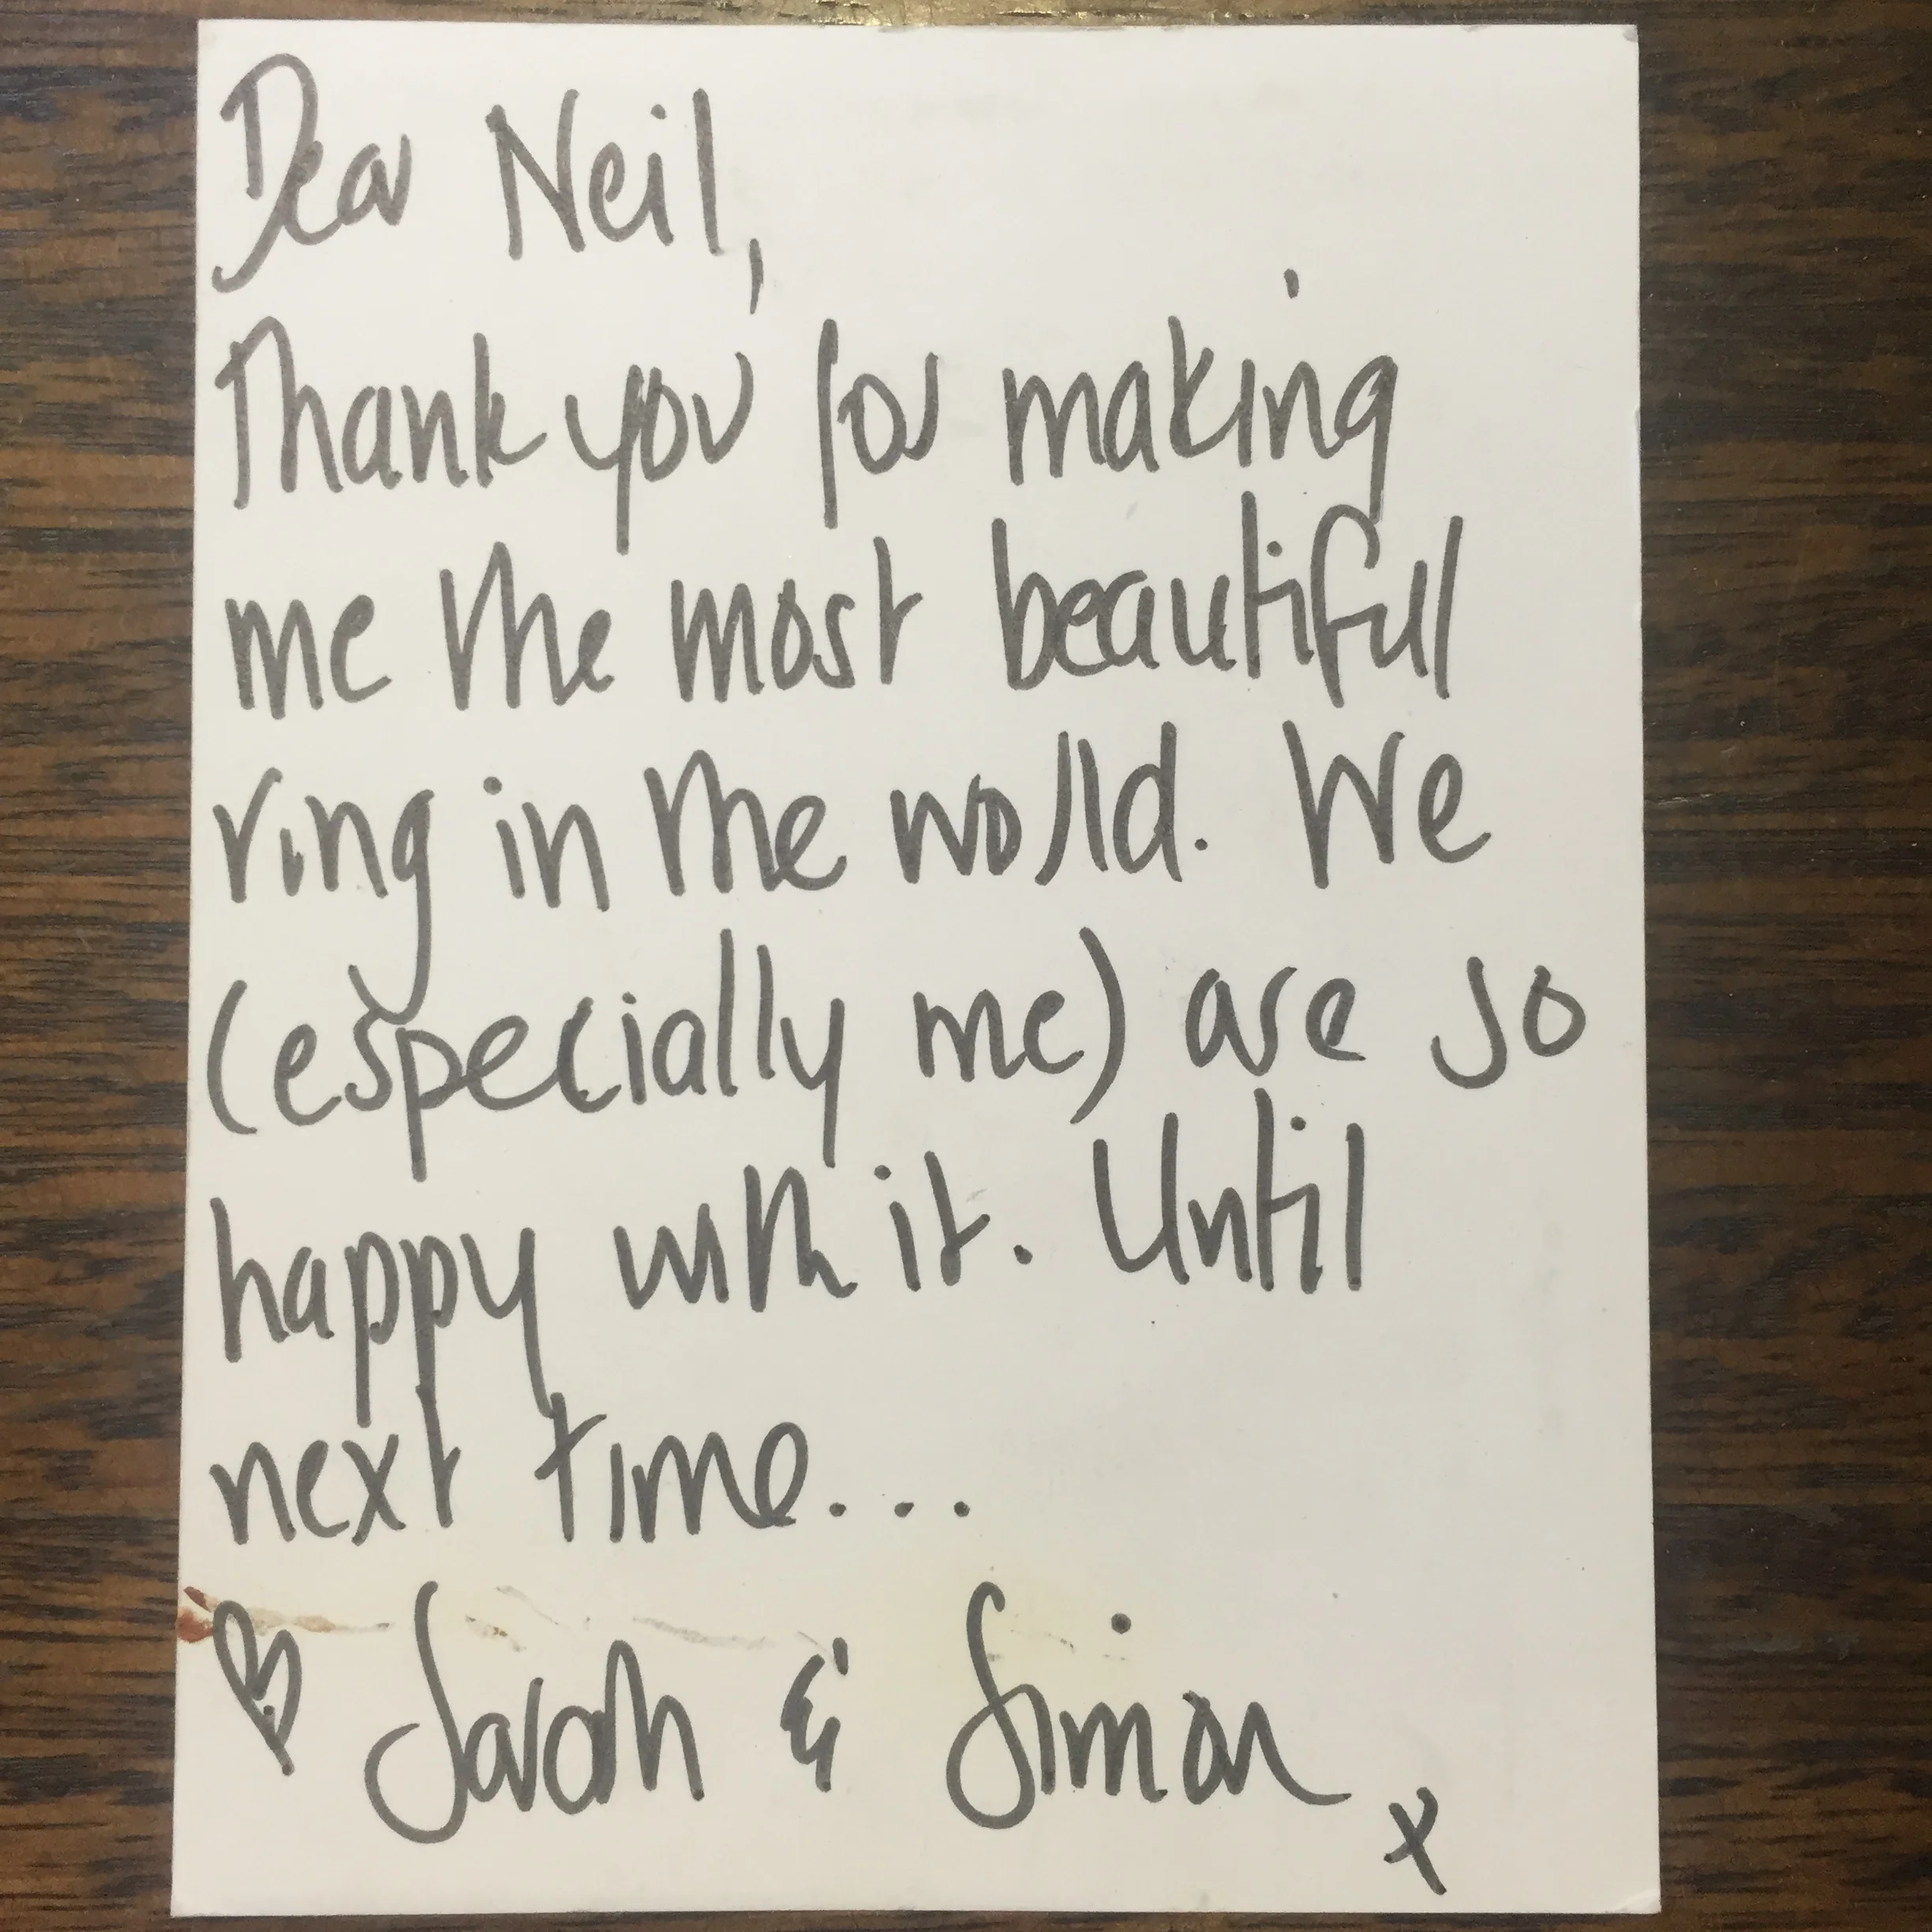 Dear Neil,
Thank you for making
me the most beautifull
ring in the world. We
(especially me) are so
happy with it. Until
next time...
♡ Sarah & Simon x